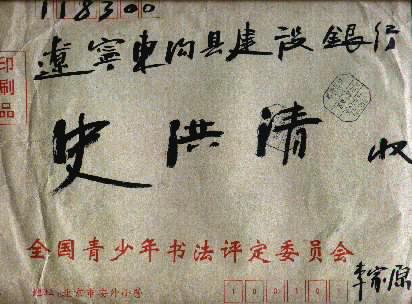 118300
印刷品
遼寧東沟县建设銀行
史洪清 收
全国青少年书法评定委员会
李家原
地址:北京市安外小营
100101